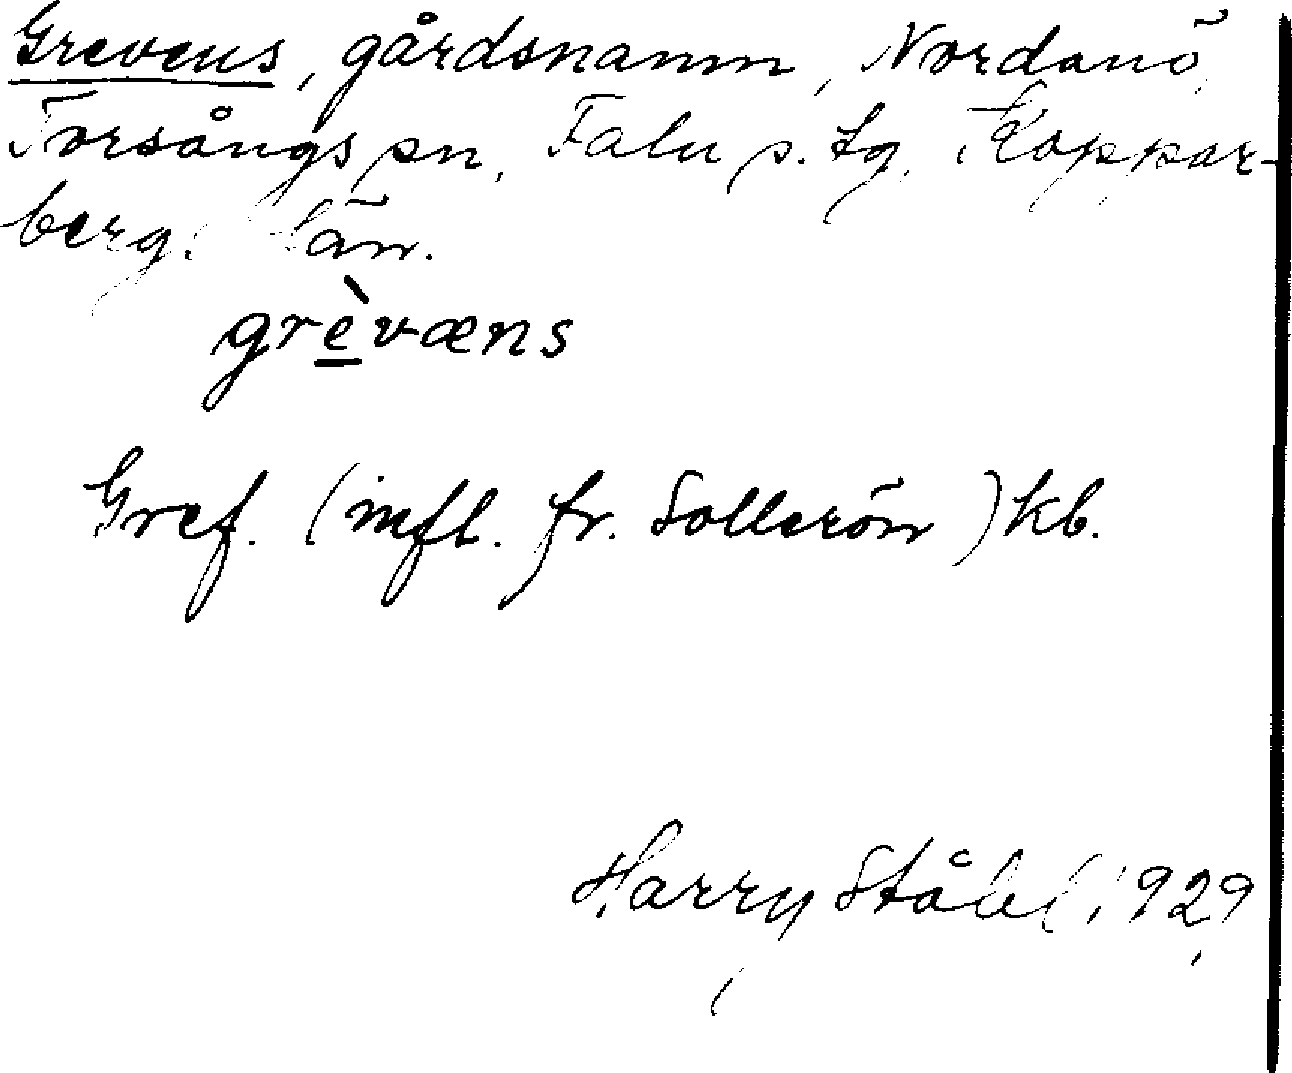 Grevens, gårdsnamn, Nordanö,
Torsångs sn, Falu s. tg, Koppar-
berg. län.
grèvæns
Gref. (infl. fr. Sollerön) kb.
Harry Ståhl 1929